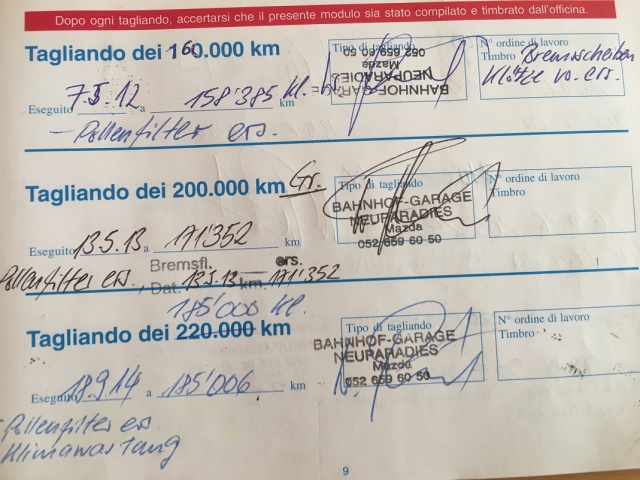 Dopo ogni tagliando, accertarsi che il presente modulo sia stato compilato e timbrato dall'officina.
Tagliando dei 160.000 km
Tipo di tagliando
BAHNHOF-GARAGE
NEUPARADIES
Mazda
052 659 60 50
N° ordine di lavoro
Timbro Bremsscheiben
Klötze vo. ers.
Eseguito 7.5.12 a 158'385 km Kl.
- Pollenfilter ers.
Tagliando dei 200.000 km Gr.
Tipo di tagliando
BAHNHOF-GARAGE
NEUPARADIES
Mazda
052 659 60 50
N° ordine di lavoro
Timbro
Eseguito 13.5.13 a 171'352 km
Pollenfilter ers. Bremsfl. ers.
Dat. 13.5.13 km. 171'352
185'000 Kl.
Tagliando dei 220.000 km
Tipo di tagliando
BAHNHOF-GARAGE
NEUPARADIES
Mazda
052 659 60 50
N° ordine di lavoro
Timbro
Eseguito 18.9.14 a 185'006 km
- Pollenfilter ers.
Klimawartung
9